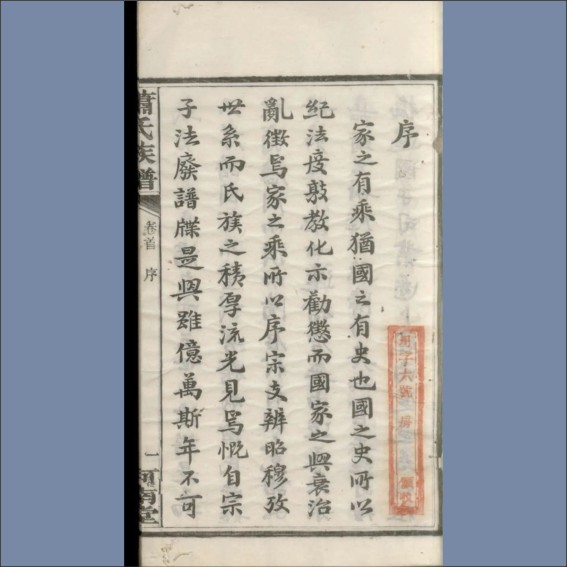 序
家之有乘猶國之有史也國之史所以
紀法度敍教化示勸懲而國家之興衰治
亂徵焉家之乘所以序宗支辨昭穆攷
世系而氏族之積厚流光見焉慨自宗
子法廢譜牒是興雖億萬斯年不可
蕭氏族譜
卷首 序
一
河南堂